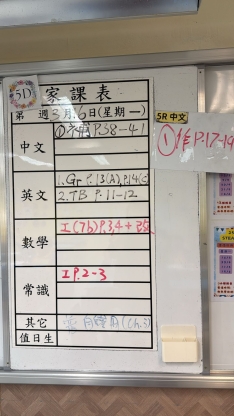 5D
家課表
第 週3月6日(星期一)
5R 中文
中文
P.38-41
①作P.17-19
英文
1.Gr P.13(A),P.14(C)
2.TB P.11-12
數學
工(7b)P.34+35
常識
工P.2-3
其它
值日生